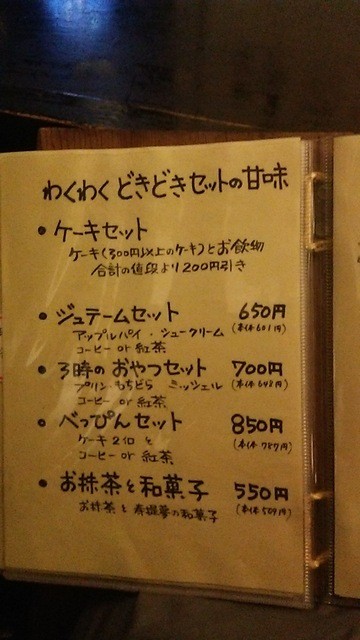 わくわく どきどきセットの甘味
• ケーキセット
ケーキ(300円以上のケーキ)とお飲物
合計の値段より200円引き
• ジュテームセット 650円
アップルパイ・シュークリーム (本体601円)
コーヒー or 紅茶
• 3時のおやつセット 700円
プリン もちどら ミッシェル (本体648円)
コーヒー or 紅茶
• べっぴんセット 850円
ケーキ2コ と (本体787円)
コーヒー or 紅茶
• お抹茶と和菓子 550円
お抹茶と の和菓子 (本体509円)